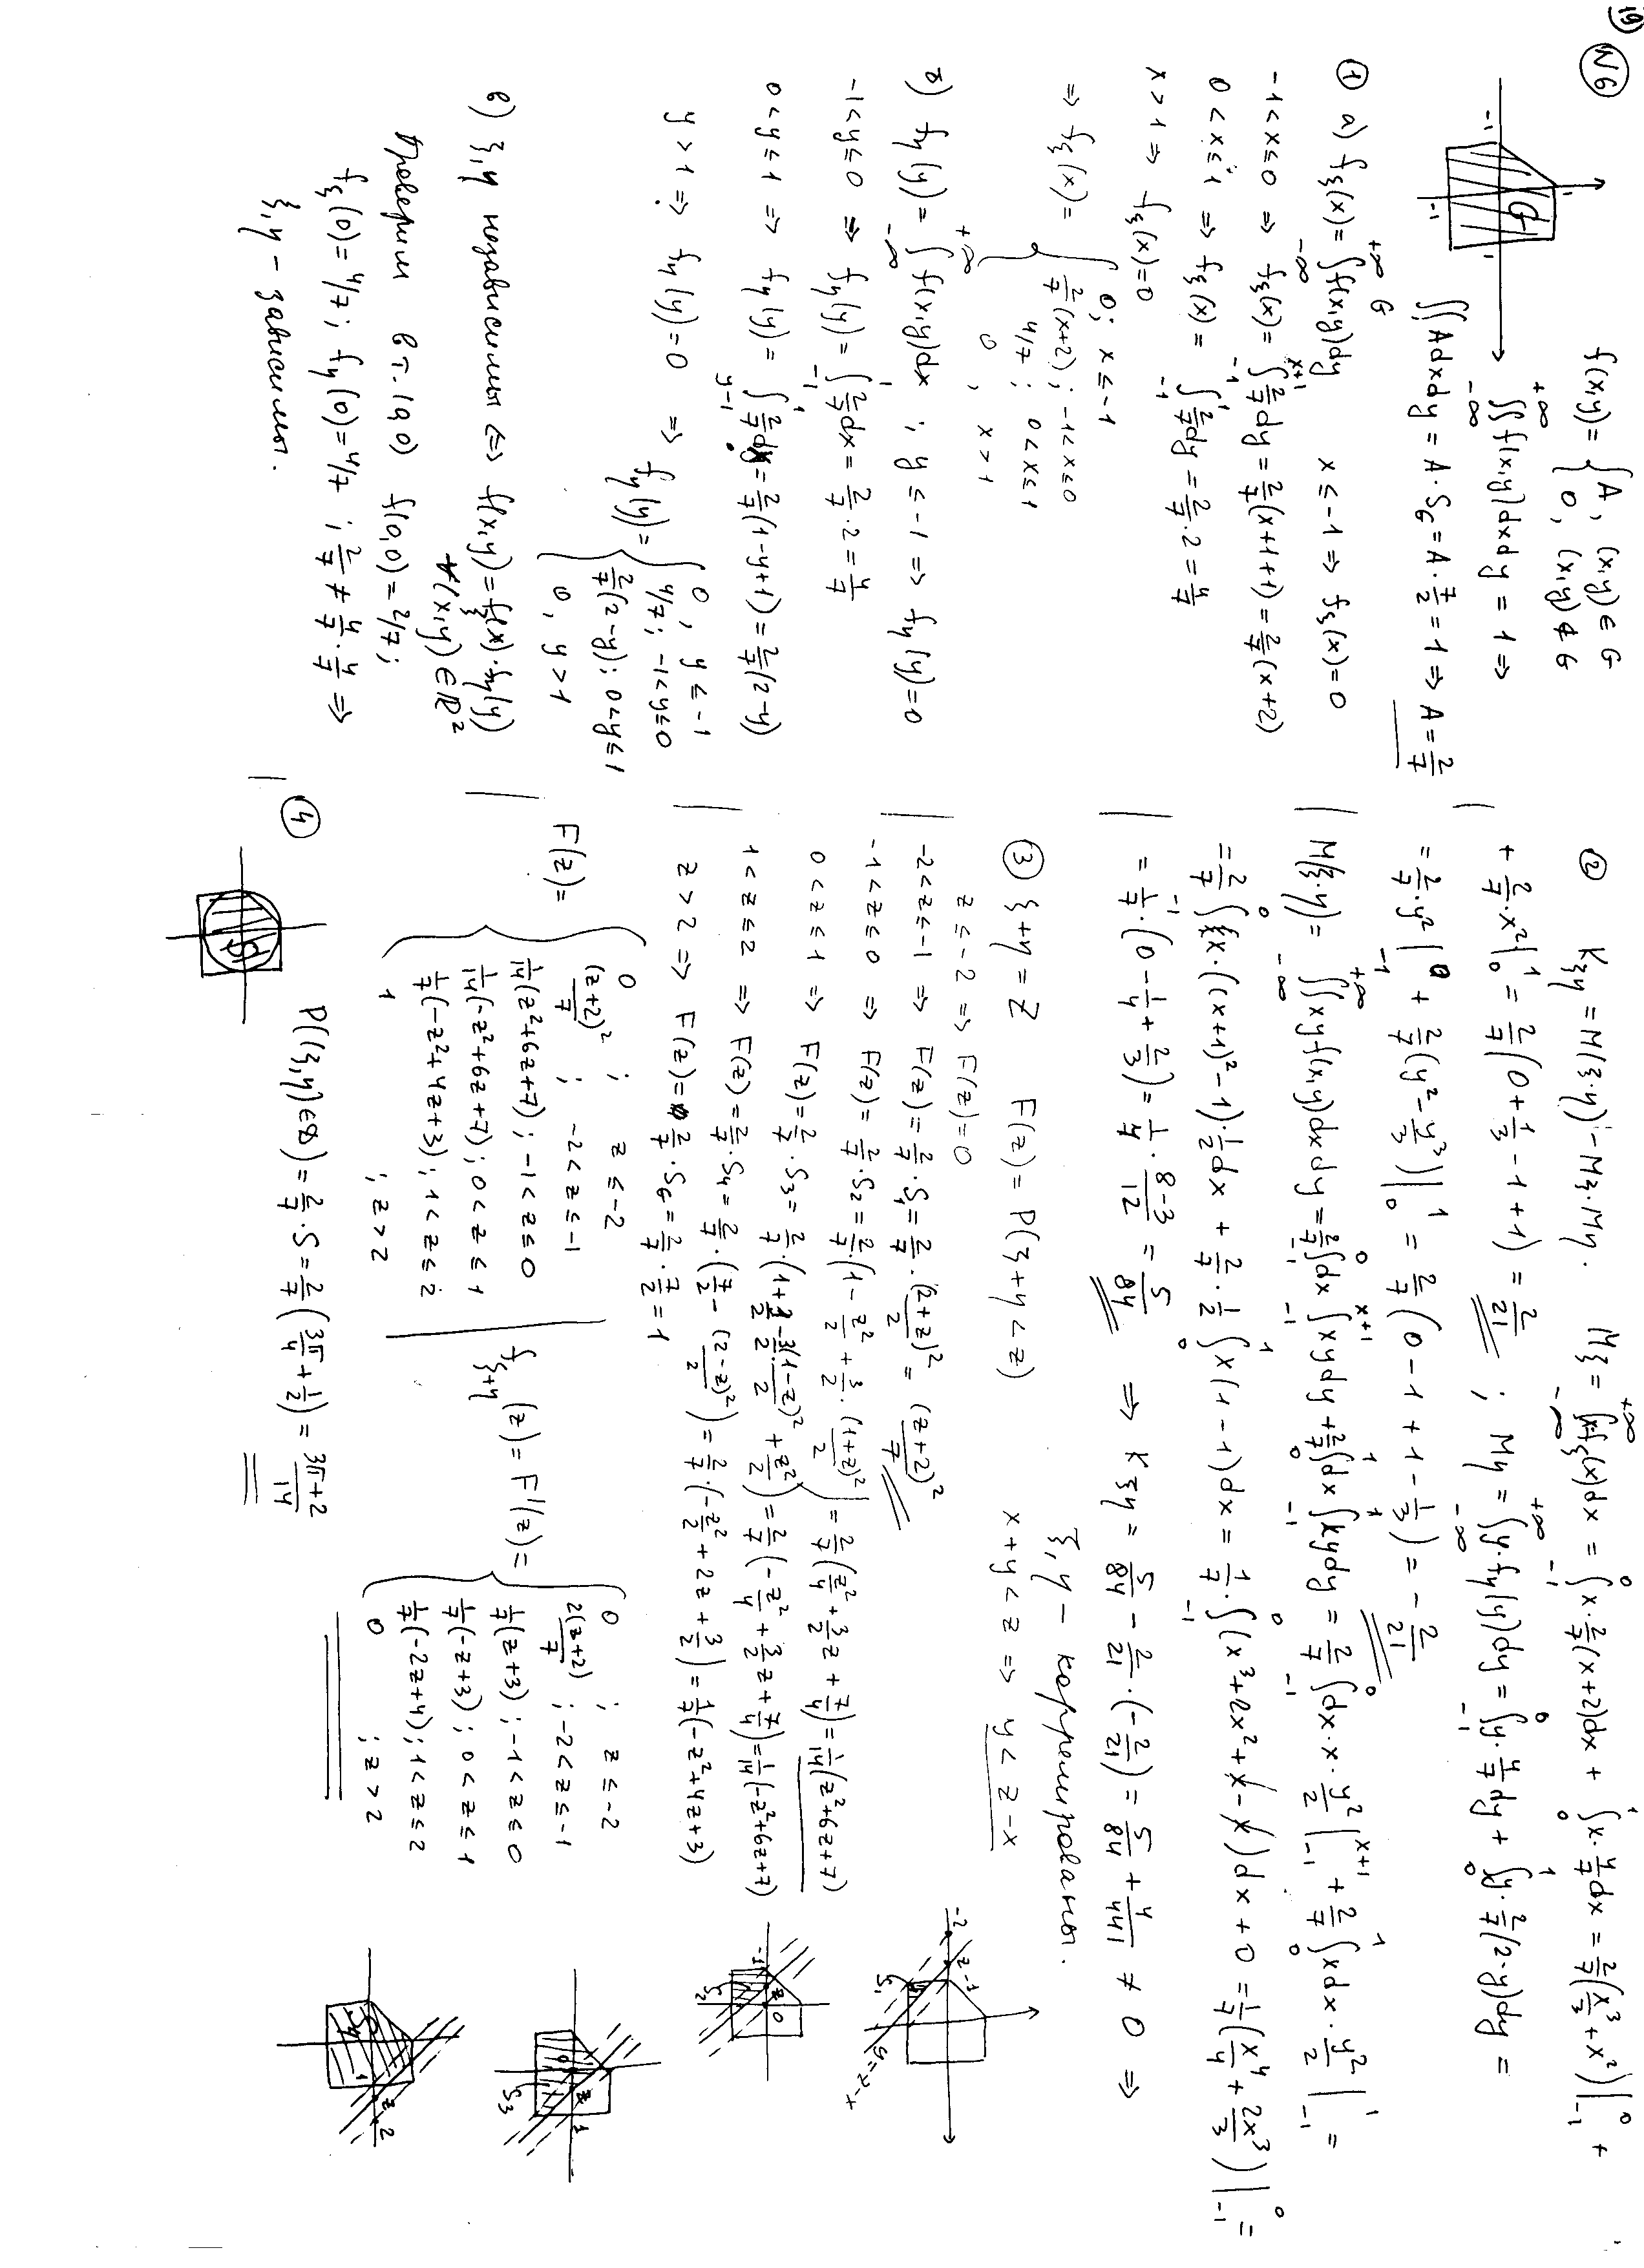 19
N6
f(x,y) = { A, (x,y) ∈ G
0, (x,y) ∉ G
-1 1 -1 1 G
+∞ ∬ -∞ f(x,y)dxdy = 1 ⇒
∬G Adxdy = A·S_G = A·7/2 = 1 ⇒ A = 2/7
① а) f_ξ(x) = ∫_{-∞}^{+∞} f(x,y)dy x ≤ -1 ⇒ f_ξ(x) = 0
-1 < x ≤ 0 ⇒ f_ξ(x) = ∫_{-1}^{x+1} 2/7 dy = 2/7 (x+1+1) = 2/7 (x+2)
0 < x ≤ 1 ⇒ f_ξ(x) = ∫_{-1}^{1} 2/7 dy = 2/7 · 2 = 4/7
x > 1 ⇒ f_ξ(x) = 0
⇒ f_ξ(x) = { 0; x ≤ -1
2/7 (x+2); -1 < x ≤ 0
4/7; 0 < x ≤ 1
0, x > 1
б) f_η(y) = ∫_{-∞}^{+∞} f(x,y)dx ; y ≤ -1 ⇒ f_η(y) = 0
-1 < y ≤ 0 ⇒ f_η(y) = ∫_{-1}^{1} 2/7 dx = 2/7 · 2 = 4/7
0 < y ≤ 1 ⇒ f_η(y) = ∫_{y-1}^{1} 2/7 dx = 2/7 (1-y+1) = 2/7 (2-y)
y > 1 ⇒ f_η(y) = 0 ⇒ f_η(y) = { 0, y ≤ -1
4/7; -1 < y ≤ 0
2/7 (2-y); 0 < y ≤ 1
0, y > 1
в) ξ,η независимы ⇔ f(x,y) = f_ξ(x)·f_η(y)
∀(x,y) ∈ R²
Проверим в т. (0,0) f(0,0) = 2/7;
f_ξ(0) = 4/7; f_η(0) = 4/7; 2/7 ≠ 4/7 · 4/7 ⇒
ξ,η - зависимы.
② K_ξη = M(ξ·η) - Mξ·Mη. Mξ = ∫_{-∞}^{+∞} x f_ξ(x)dx = ∫_{-1}^{0} x·2/7 (x+2)dx + ∫_{0}^{1} x·4/7 dx = 2/7 (x³/3 + x²)|_{-1}^{0} +
+ 2/7 · x²|_0^1 = 2/7 (0 + 1/3 - 1 + 1) = 2/21 ; Mη = ∫_{-∞}^{+∞} y·f_η(y)dy = ∫_{-1}^{0} y·4/7 dy + ∫_{0}^{1} y·2/7 (2-y)dy =
= 2/7 · y²|_{-1}^{0} + 2/7 (y² - y³/3)|_0^1 = 2/7 (0 - 1 + 1 - 1/3) = - 2/21
M(ξ·η) = ∬_{-∞}^{+∞} xyf(x,y)dxdy = 2/7 ∫_{-1}^{0} dx ∫_{-1}^{x+1} xydy + 2/7 ∫_{0}^{1} dx ∫_{-1}^{1} xydy = 2/7 ∫_{-1}^{0} dx·x·y²/2|_{-1}^{x+1} + 2/7 ∫_{0}^{1} xdx·y²/2|_{-1}^{1} =
= 2/7 ∫_{-1}^{0} x·((x+1)² - 1)·1/2 dx + 2/7 · 1/2 ∫_{0}^{1} x(1-1)dx = 1/7 · ∫_{-1}^{0} (x³ + 2x² + x - x)dx + 0 = 1/7 (x⁴/4 + 2x³/3)|_{-1}^{0} =
= 1/7 · (0 - 1/4 + 2/3) = 1/7 · 8-3/12 = 5/84 ⇒ K_ξη = 5/84 - 2/21 · (-2/21) = 5/84 + 4/441 ≠ 0 ⇒
ξ,η - коррелированы.
③ ξ+η = Z F(z) = P(ξ+η < z) x+y < z ⇒ y < z-x
z ≤ -2 ⇒ F(z) = 0
-2 < z ≤ -1 ⇒ F(z) = 2/7 · S₁ = 2/7 · (2+z)²/2 = (z+2)²/7
-1 < z ≤ 0 ⇒ F(z) = 2/7 · S₂ = 2/7 · (1 - z²/2 + 3/2 · (1+z)²/2) = 2/7 (z²/4 + 3/2 z + 7/4) = 1/14 (z²+6z+7)
0 < z ≤ 1 ⇒ F(z) = 2/7 · S₃ = 2/7 · (1 + 3/2 - 3/2 (1-z)²/2 + z²/2) = 2/7 (-z²/4 + 3/2 z + 7/4) = 1/14 (-z²+6z+7)
1 < z ≤ 2 ⇒ F(z) = 2/7 · S₄ = 2/7 · (7/2 - (2-z)²/2) = 2/7 · (-z²/2 + 2z + 3/2) = 1/7 (-z²+4z+3)
z > 2 ⇒ F(z) = 2/7 · S_G = 2/7 · 7/2 = 1
F(z) = { 0 ; z ≤ -2
(z+2)²/7 ; -2 < z ≤ -1
1/14 (z²+6z+7); -1 < z ≤ 0
1/14 (-z²+6z+7); 0 < z ≤ 1
1/7 (-z²+4z+3); 1 < z ≤ 2
1 ; z > 2
f_{ξ+η}(z) = F'(z) = { 0 ; z ≤ -2
2(z+2)/7 ; -2 < z ≤ -1
1/7 (z+3); -1 < z ≤ 0
1/7 (-z+3); 0 < z ≤ 1
1/7 (-2z+4); 1 < z ≤ 2
0 ; z > 2
-2 z -1 S₁ y=z-x
-1 z 0 S₂
0 z 1 S₃
S₄ 1 z 2
④ P((ξ,η) ∈ D) = 2/7 · S = 2/7 (3π/4 + 1/2) = 3π+2/14